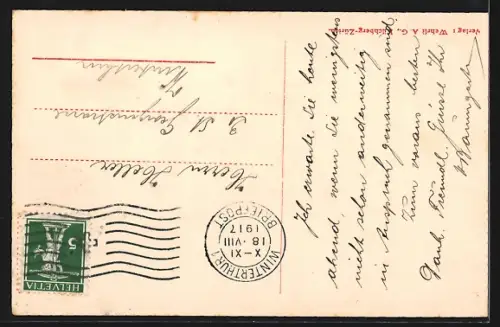 Verlag: Wehrli A. G., Kilchberg-Zürich
Ich erwarte Sie heute
abend, wenn Sie wenigstens
nicht schon anderweitig
in Anspruch genommen sind.
Zum voraus besten
Dank. Freundl. Grüsse Ihr
Herrn Heller
St. Georgenstrasse
Winterthur
WINTERTHUR 1
BRIEFPOST
18. VIII
1917
X-XI
5
HELVETIA